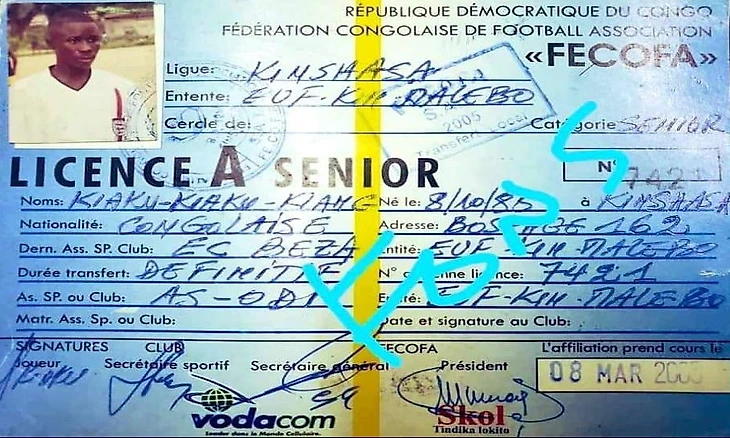 RÉPUBLIQUE DÉMOCRATIQUE DU CONGO
FÉDÉRATION CONGOLAISE DE FOOTBALL ASSOCIATION
«FECOFA»
Ligue: KINSHASA
Entente: EUF-KIN-MALEBO
Cercle de:
Catégorie SENIOR
LICENCE A SENIOR
N° 7421
Noms: KIAKU-KIAKU-KIANG Né le: 8/10/85 à KINSHASA
Nationalité: CONGOLAISE Adresse: 162
Dern. Ass. SP. Club: EC BEZA Entité: EUF-KIN-MALEBO
Durée transfert: DEFINITIF licence: 7421
As. SP. ou Club: AS- EUF-KIN-MALEBO
Matr. Ass. Sp. ou Club: Date et signature au Club:
SIGNATURES CLUB FECOFA L'affiliation prend cours le
Joueur Secrétaire sportif Secrétaire général Président
08 MAR
vodacom
Leader dans le Monde Cellulaire.
Skol
Tindika lokito